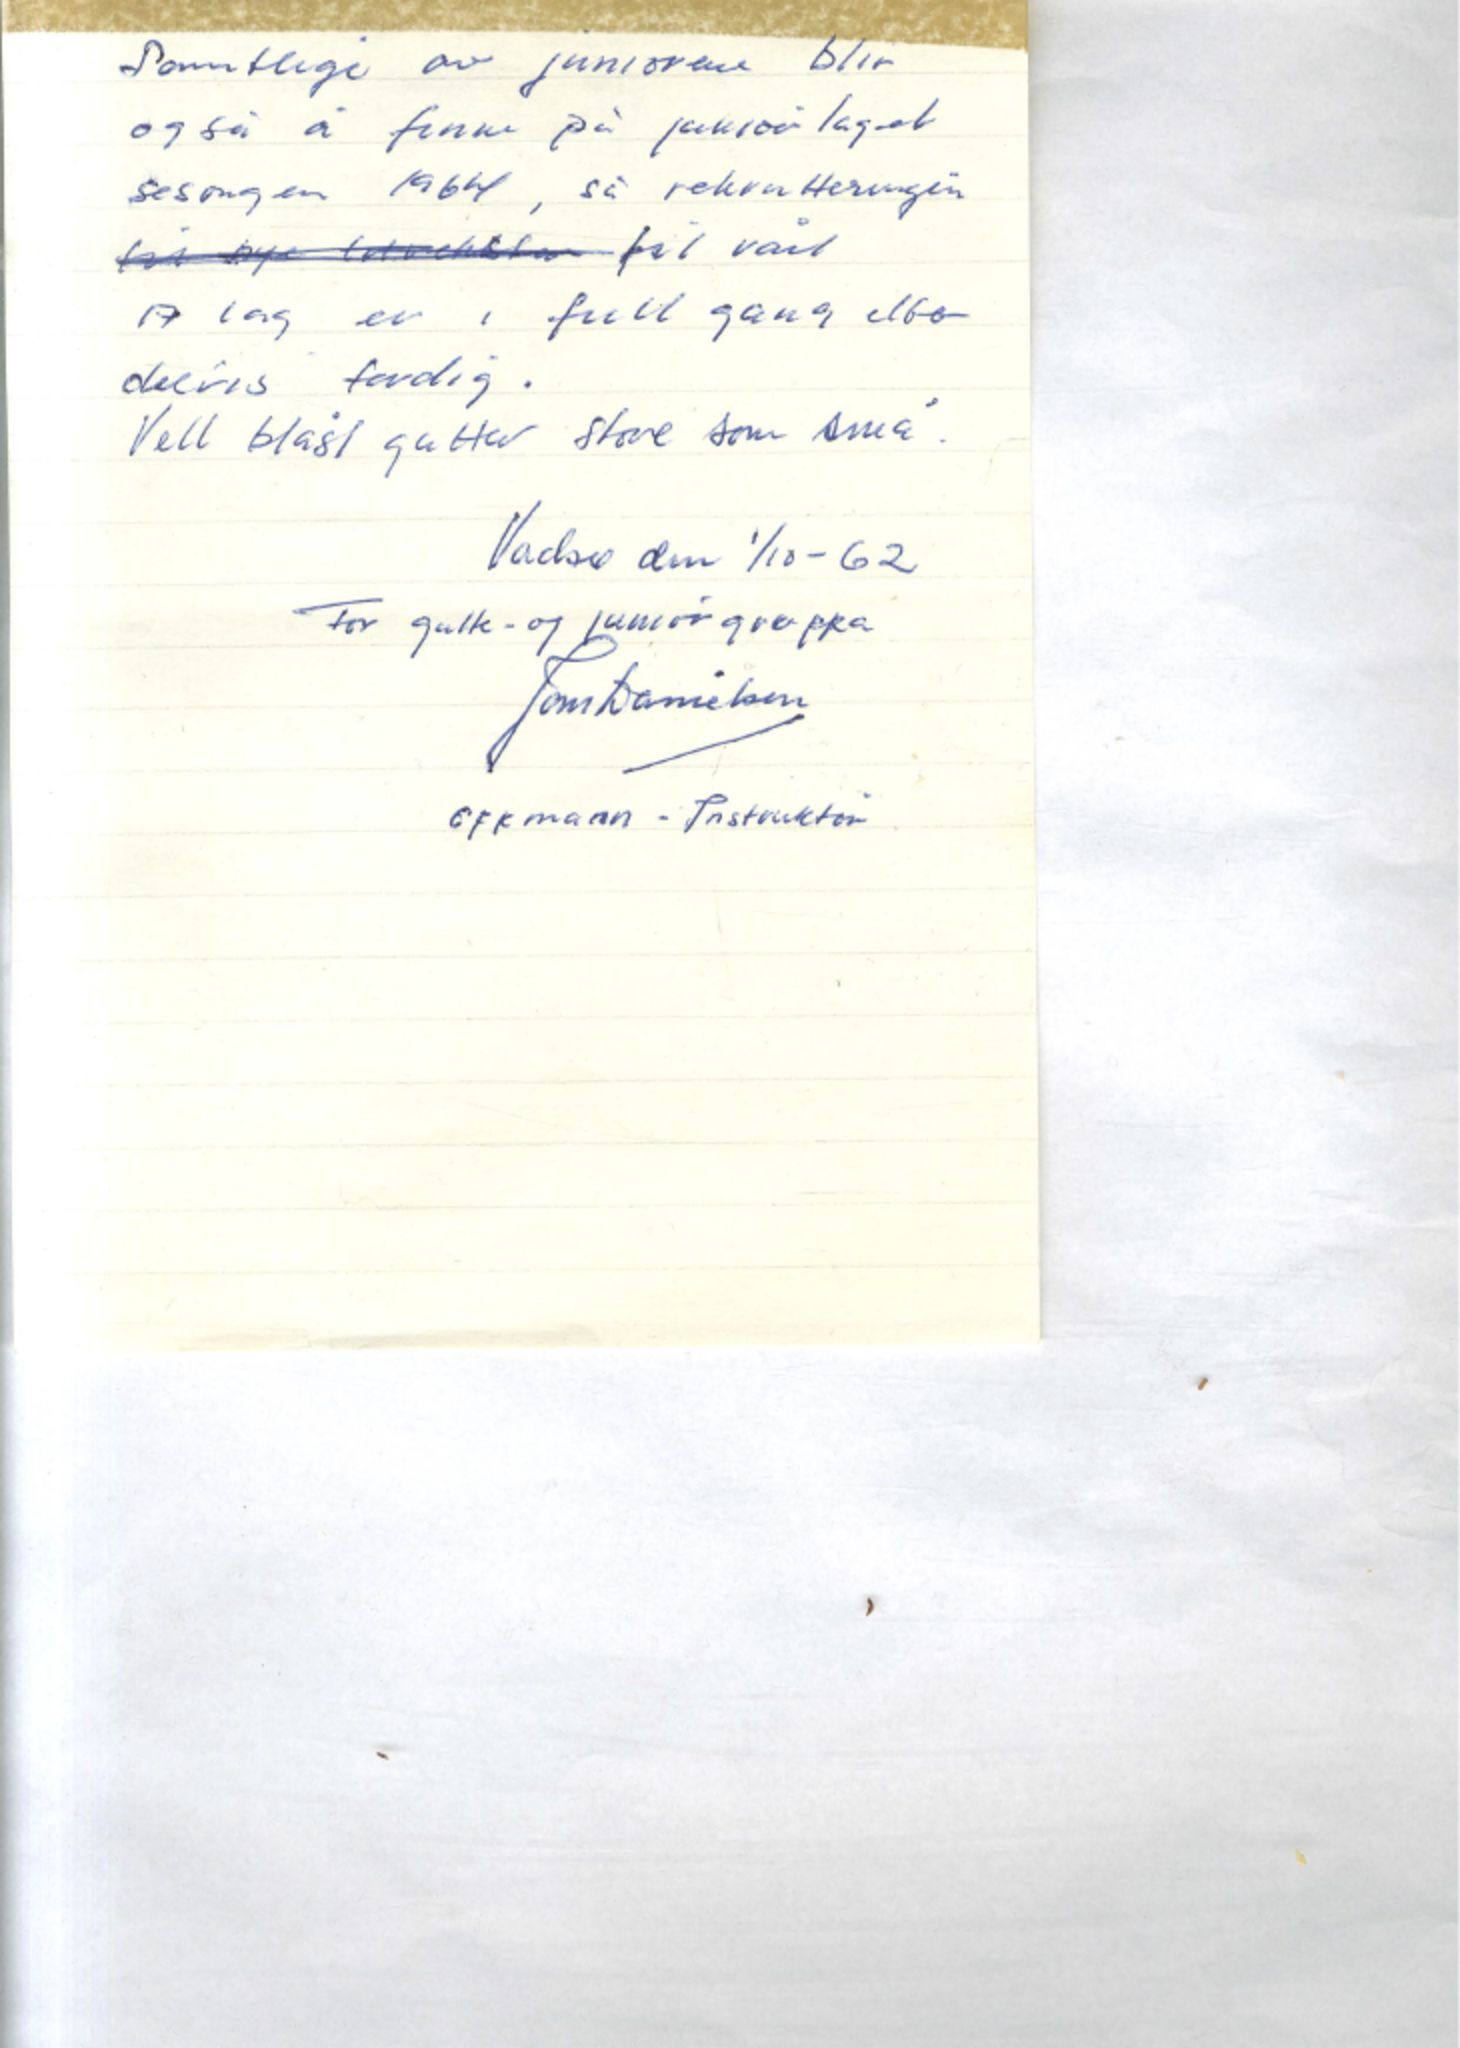 Samtlige av juniorene blir
også å finne på juniorlaget
sesongen 1964, så rekrutteringen
til vårt
A lag er i full gang eller
delvis ferdig.
Vell blåst gutter store som små.
Vadsø den 1/10-62
For gutte- og juniorgruppa
Tom Danielsen
oppmann - Instruktør